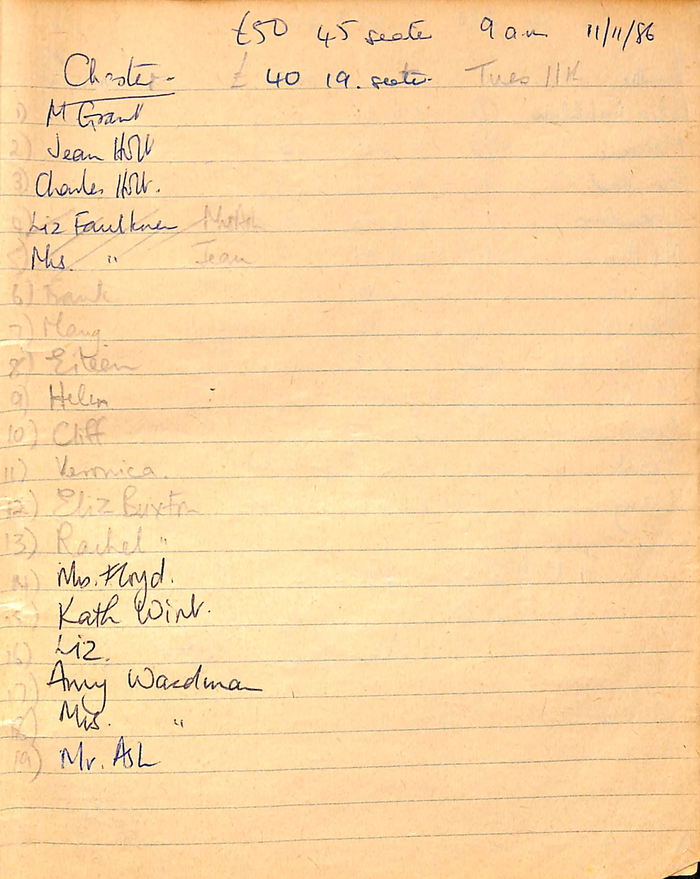 £50 45 seater 9 am 11/11/86
Chester £ 40 19. seater Tues 11th
1) M Grant
2) Jean Holt
3) Charles Holt.
4) Liz Faulkner Mr Ash
5) Mrs. " Jean
6) Frank
7)
8) Eileen
9) Helen
10) Cliff
11) Veronica.
12) Eliz Buxton
13) Rachel "
14) Mrs. Floyd.
15) Kath Wint.
16) Liz.
17) Amy Wardman
18) Mrs. "
19) Mr. Ash